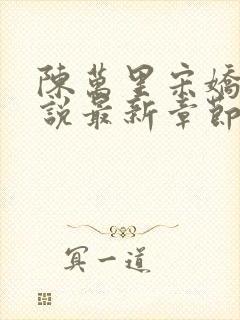 陳萬里宋嬌
說最新章節
冥一道